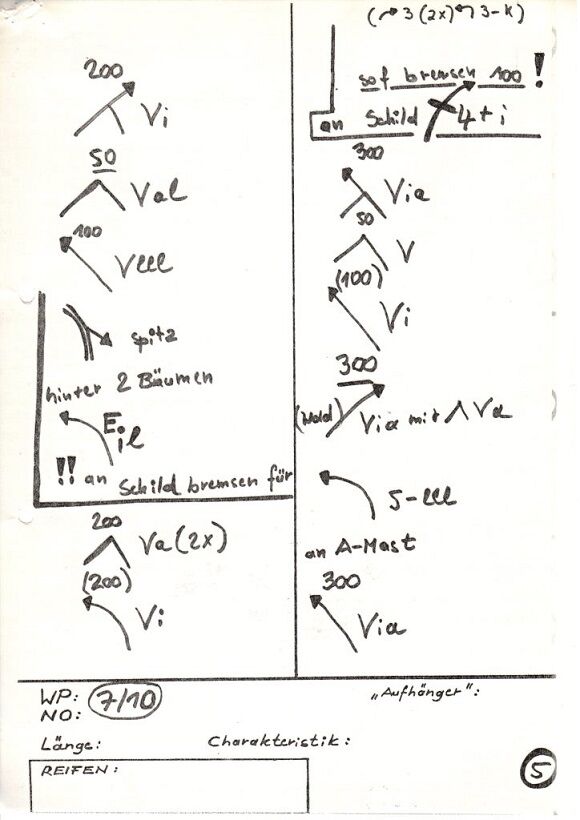 200
Vi
50
Val
100
Vlll
spitz
hinter 2 Bäumen
Eil
!! an Schild bremsen für
200
Va (2x)
(200)
Vi
( 3 (2x) 3-K)
sof bremsen 100 !
an Schild 4+i
300
Via
50
V
(100)
Vi
300
(Wald) Via mit Λ Va
5-lll
an A-Mast
300
Via
WP: 7/10
NO:
„Aufhänger“:
Länge:
Charakteristik:
REIFEN:
5